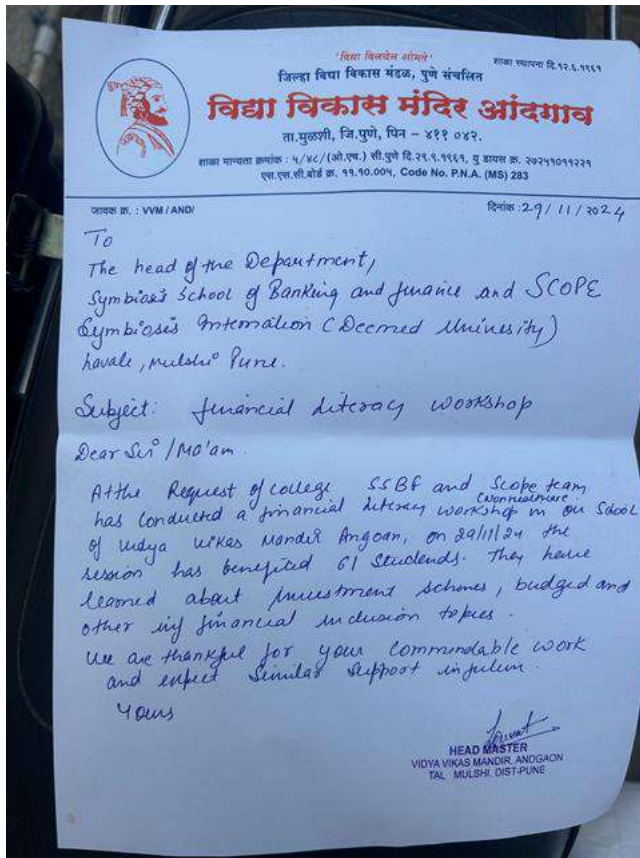 'विद्या विनयेन शोभते'
शाळा स्थापना दि.१२.६.१९६१
जिल्हा विद्या विकास मंडळ, पुणे संचलित
विद्या विकास मंदिर आंदगाव
ता.मुळशी, जि.पुणे, पिन – ४११ ०४२.
शाळा मान्यता क्रमांक : ५/४८/(ओ.एच.) सी.पुणे दि.२९.९.१९६१, यु डायस क्र. २७२५१०११२२१
एस.एस.सी.बोर्ड क्र. ११.१०.००५, Code No. P.N.A. (MS) 283
जावक क्र. : VVM / AND/
दिनांक :29/11/2024
To
The head of the Department,
Symbiosis School of Banking and finance and SCOPE
Symbiosis Internation (Deemed Univesity)
havale, mulshi Pune.
Subject: financial literacy workshop
Dear Sir /Ma'am
At the Request of college SSBF and Scope team
has conducted a financial literacy workshop in our School
of Vidya Vikas Mandir Angoan, on 29/11/24 the
session has benefited 61 Students. They have
learned about investment schemes, budged and
other financial inclusion topics.
We are thankful for your commendable work
and expect Similar Support in
Yours
HEAD MASTER
VIDYA VIKAS MANDIR, ANDGAON
TAL MULSHI. DIST-PUNE